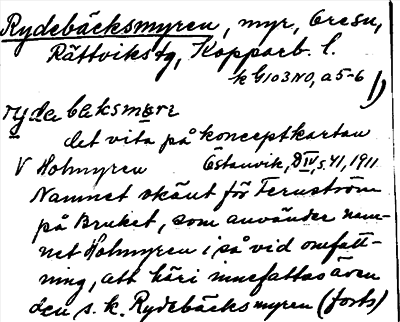 Rydebäcksmyren, myr, Oresu,
Rättviks tg, Kopparb. l.
k G103NO, a5-6 1)
rydebäksmöre
det vita på konceptkartan
V Holmyren Östanvik, DIV, s. 41, 1911
Namnet okänt för Fernström
på Bruket, som använder nam-
net Holmyren i så vid omfatt-
ning, att häri innefattas även
den s. k. Rydebäcksmyren (forts)